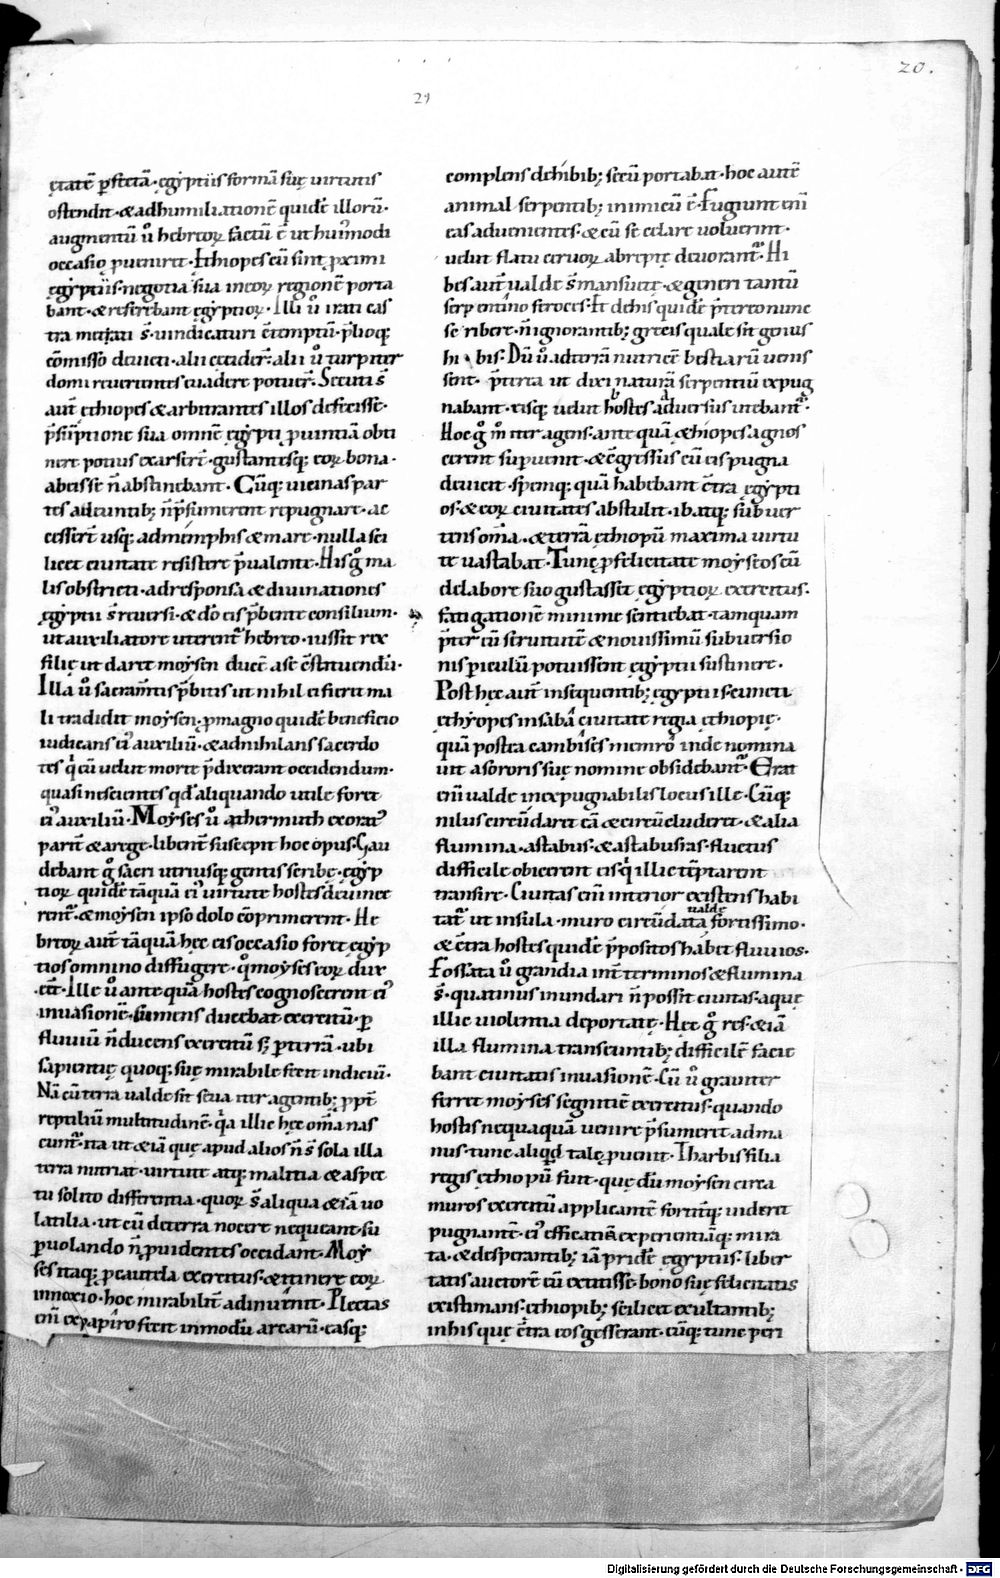 20.
21
ętatē ꝑfectā · ęgẏptiis formā suę uirtutis
ostendit · & ad humiliationē quidē illorū ·
augmentū ů hebreoꝝ factū ē ut huiꝰmodi
occasio ꝓueniret · Ethiopes cū sint ꝓximi
ęgẏptiis · negotia sua in eoꝝ regionē porta
bant · & referebant ęgẏptioꝝ · Illi ů irati cas
tra s̄ · uindicaturi ↄtemptū · ꝓ hocꝗ;
cōmisso deuicti · alii cecider̄ · alii ů turpiter
domi reuertentes euadere potuer̄ · Secuti s̄
aut̄ ęthiopes & arbitrantes illos defecisse ·
p̄sūptione sua omnē ęgẏpti ꝓuintiā obti
nere potius exarser̄t · gustantesꝗ; eoꝝ bona ·
ab eis se n̄ abstinebant · Cūꝗ; uicinas par
tes adeuntib; n̄ p̄sumerent repugnare · ac
cesser̄t usꝗ; ad memphis & mare · nulla sci
licet ciuitate resistere p̄ualente · His g̊ ma
lis obstricti · ad responsa & diuinationes
ęgẏptii s̄ reuersi · & dō eis p̄bente consilium ·
ut auxiliatore uterent᷑ hebreo · iussit rex
filię ut daret moẏsen ducē a se ↄstituendū ·
Illa ů sacram̄tis p̄bitis ut nihil ei fieret ma
li tradidit moẏsen · ꝓ magno quidē beneficio
iudicans eiꝰ auxiliū · & adnihilans sacerdo
tes q̇ eū uelut morte p̄dixerant occidendum ·
quasi nescientes qd̄ aliquando utile foret
eiꝰ auxiliū · Moẏses ů a thermuth exoratꝰ
parit̄ & a rege · libent̄ suscepit hoc opus · Gau
debant g̊ sacri utriusꝗ; gentis scribę · ęgẏp
tioꝝ quidē tāquā eiꝰ uirtute hostes deuince
rent᷑ · & moẏsen ipso dolo cōprimerent · He
breoꝝ aut̄ tāquā hęc eis occasio foret ęgẏp
tios omnino diffugere · qm̄ moẏses eoꝝ dux
eēt · Ille ů ante quā hostes cognoscerent eiꝰ
inuasionē · sumens ducebat exercitū · ꝑ
fluuiū n̄ ducens exercitū s; ꝑ terrā · ubi
sapientię quoꝗ; suę mirabile fecit indiciū ·
Nā cū terra ualde sit seua iter agentib; ꝓpt̄
reptiliū multitudinē · q̇a illic hęc om̄a nas
cunt᷑ · ita ut & iā quę apud alios n̄ s̄ sola illa
terra nutriat · uirtute atꝗ; malitia & aspec
tu solito differentia · quoꝝ s̄ aliqua & iā uo
latilia · ut cū de terra nocere nequeant · su
ꝑ uolando n̄ ꝓuidentes occidant · Moẏ
ses itaꝗ; ꝓ cautela exercitus · & itinere eoꝝ
innoxio · hoc mirabilit̄ adinuenit · Plectas
eni̅ ex papiro fecit in modū arcarū · easꝗ;
complens de hibib; secū portabat · hoc autē
animal serpentib; inimicū ē · Fugiunt eni̅
eas aduenientes · & cū se celare uoluerint ·
uelut flatu ceruoꝝ abrepte deuorant᷑ · Hi
bes aut̄ ualde s̄ mansuetę · & generi tantū
serpentino feroces · Et de his quidē p̄tereo nunc
scribere · n̄ ignorantib; grecis quale sit genus
hibis · Dū ů ad terrā nutricē bestiarū uenis
sent · p̄terea ut dixi naturā serpentiū expug
nabant · eisꝗ; uelut hostes aduersus utebant᷑ ·
Hoc g̊ m̊ iter agens · ante quā ęthiopes agnos
cerent superuenit · & ↄgressus cū eis pugna
deuicit · spemꝗ; quā habebant ↄtra ęgẏpti
os · & eoꝝ ciuitates abstulit · ibatꝗ; subuer
tens om̄a · & terrā ęthiopū maxima uirtu
te uastabat · Tunc ꝓ felicitate moẏseos cū
de labore suo gustasset ęgẏptioꝝ exercitus ·
fatigationē minime sentiebat · tamquam
p̄ter cū seruitutē & nouissimū subuersio
nis periculū potuissent ęgẏptii sustinere ·
Post hęc aut̄ insequentib; ęgẏptiis cuncti
ęthẏopes in sabā ciuitate regia ęthiopię ·
quā postea cambises meroen̄ inde nomina
uit a sororis suę nomine obsidebant᷑ · Erat
eni̅ ualde inexpugnabilis locus ille · Cūꝗ;
nilus circūdaret eā & circūcluderet · & alia
flumina · astabus · & astabusias · fluctus
difficile obicerent eis q̇ illic tēptarent
transire · Ciuitas eni̅ interior existens habi
tat᷑ ut insula · muro circūdata ualde fortissimo ·
& ↄtra hostes quidē p̄positos habet fluuios ·
Fossata ů grandia int̄ terminos & flumina
s̄ · quatinus inundari n̄ possit ciuitas · aquę
illic uiolentia deportatę · Hęc g̊ res & iā
illa flumina transeuntib; difficilē facie
bant ciuitatis inuasionē · Cū ů grauiter
ferret moẏses segnitiē exercitus · quando
hostis nequaquā uenire p̄sumeret ad ma
nus · tunc aliqd̄ tale ꝓuenit · Tharbis filia
regis ęthiopū fuit · quę dū moẏsen circa
muros exercitū applicantē fortit̄ꝗ; uideret
pugnantē · eiꝰ efficatiā experientiāꝗ; mira
ta · & desperantib; iā pridē ęgẏptiis · liber
tatis auctorē cū extitisse · bono suę felicitatis
existimans · ęthiopib; scilicet exultantib;
in his quę ↄtra eos gesserant · cūꝗ; tunc peri
Digitalisierung gefördert durch die Deutsche Forschungsgemeinschaft - DFG